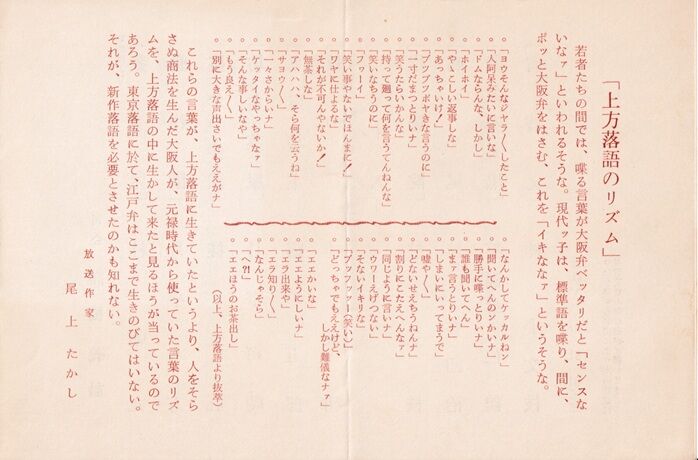 「上方落語のリズム」
若者たちの間では、喋る言葉が大阪弁ベッタリだと「センスな
いなァ」といわれるそうな。現代ッ子は、標準語を喋り、間に、
ポッと大阪弁をはさむ、これを「イキなァ」というそうな。
。「ヨウそんなジャラ〳〵したこと」
。「人阿呆みたいに言いな」
。「ドムならんな、しかし」
。「ホイホイ」
。「やゝこしい返事しな」
。「あっちゃいけ！」
。「ブツブツボヤきな言うのに」
。「一寸だまっとりいナ」
。「笑うたらいかんな」
。「持って廻って何を言うてんねんな」
。「笑いなちうのに」
。「フゥーイ」
。「笑い事やないでほんまに！」
。「ワヤに仕よるな」
。「それが不可んやないか！」
。「無茶しな」
。「アハハハ、そら何を云うね」
。「サヨウ〳〵」
。「一々さからいナ」
。「ケッタイなやっちゃなァ」
。「そんな事しいなや」
。「もう良え〳〵」
。「別に大きな声出さいでもええがナ」
。「なんかしてケッカルねン」
。「聞いてへんのンかいナ」
。「勝手に喋っとりいナ」
。「誰も聞いてへん」
。「まァ言うとりいナ」
。「しまいにいてまうで」
。「嘘や〳〵」
。「どないせえちうねんナ」
。「割りにこたえへんなァ」
。「同じように言いナ」
。「ウワーえげつない」
。「そないイキりな」
。「プッフッッー（笑い）」
。「どっちゃでもええけど、
しかし難儀なナァ」
。「エエかいな」
。「エエようにしいナ」
。「エラ出来や」
。「エラ知り〳〵」
。「なんじゃそら」
。「へ⁈」
。「エエほうのお茶出し」
（以上、上方落語より抜萃）
これらの言葉が、上方落語に生きていたというより、人をそら
さぬ商法を生んだ大阪人が、元禄時代から使っていた言葉のリズ
ムを、上方落語の中に生かして来たと見るほうが当っているので
あろう。東京落語に於て、江戸弁はここまで生きのびてはいない。
それが、新作落語を必要とさせたのかも知れない。
放送作家
尾上たかし